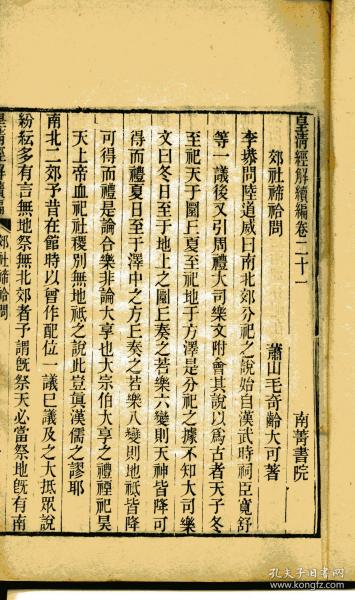 皇清經解續編卷二十一
南菁書院
郊社禘祫問
蕭山毛奇齡大可著
李塨問陸道威曰南北郊分祀之說始自漢武時祠臣寬舒
等一議後又引周禮大司樂文附會其說以爲古者天子冬
至祀天于圜丘夏至祀地于方澤是分祀之據不知大司樂
文曰冬日至于地上之圜丘奏之若樂六變則天神皆降可
得而禮夏日至于澤中之方丘奏之若樂八變則地祇皆降
可得而禮是論合樂非論大享也大宗伯大享之禮禋祀昊
天上帝血祀社稷別無地祇之說此豈眞漢儒之謬耶
南北二郊予昔在館時以曾作配位一議已議及之大抵眾說
紛紜多有言無地祭無北郊者予謂旣祭天必當祭地旣有南
皇清經解續編
郊社禘祫問
孔夫子旧书网